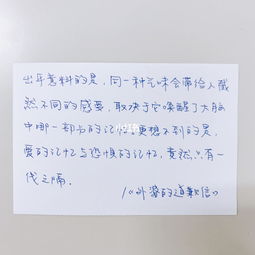 出乎意料的是，同一种气味会带给人截
然不同的感受，取决于它唤醒了大脑
中哪一部分的记忆。更想不到的是，
爱的记忆与恐惧的记忆，竟然只有一
代之隔。
/《外婆的道歉信》